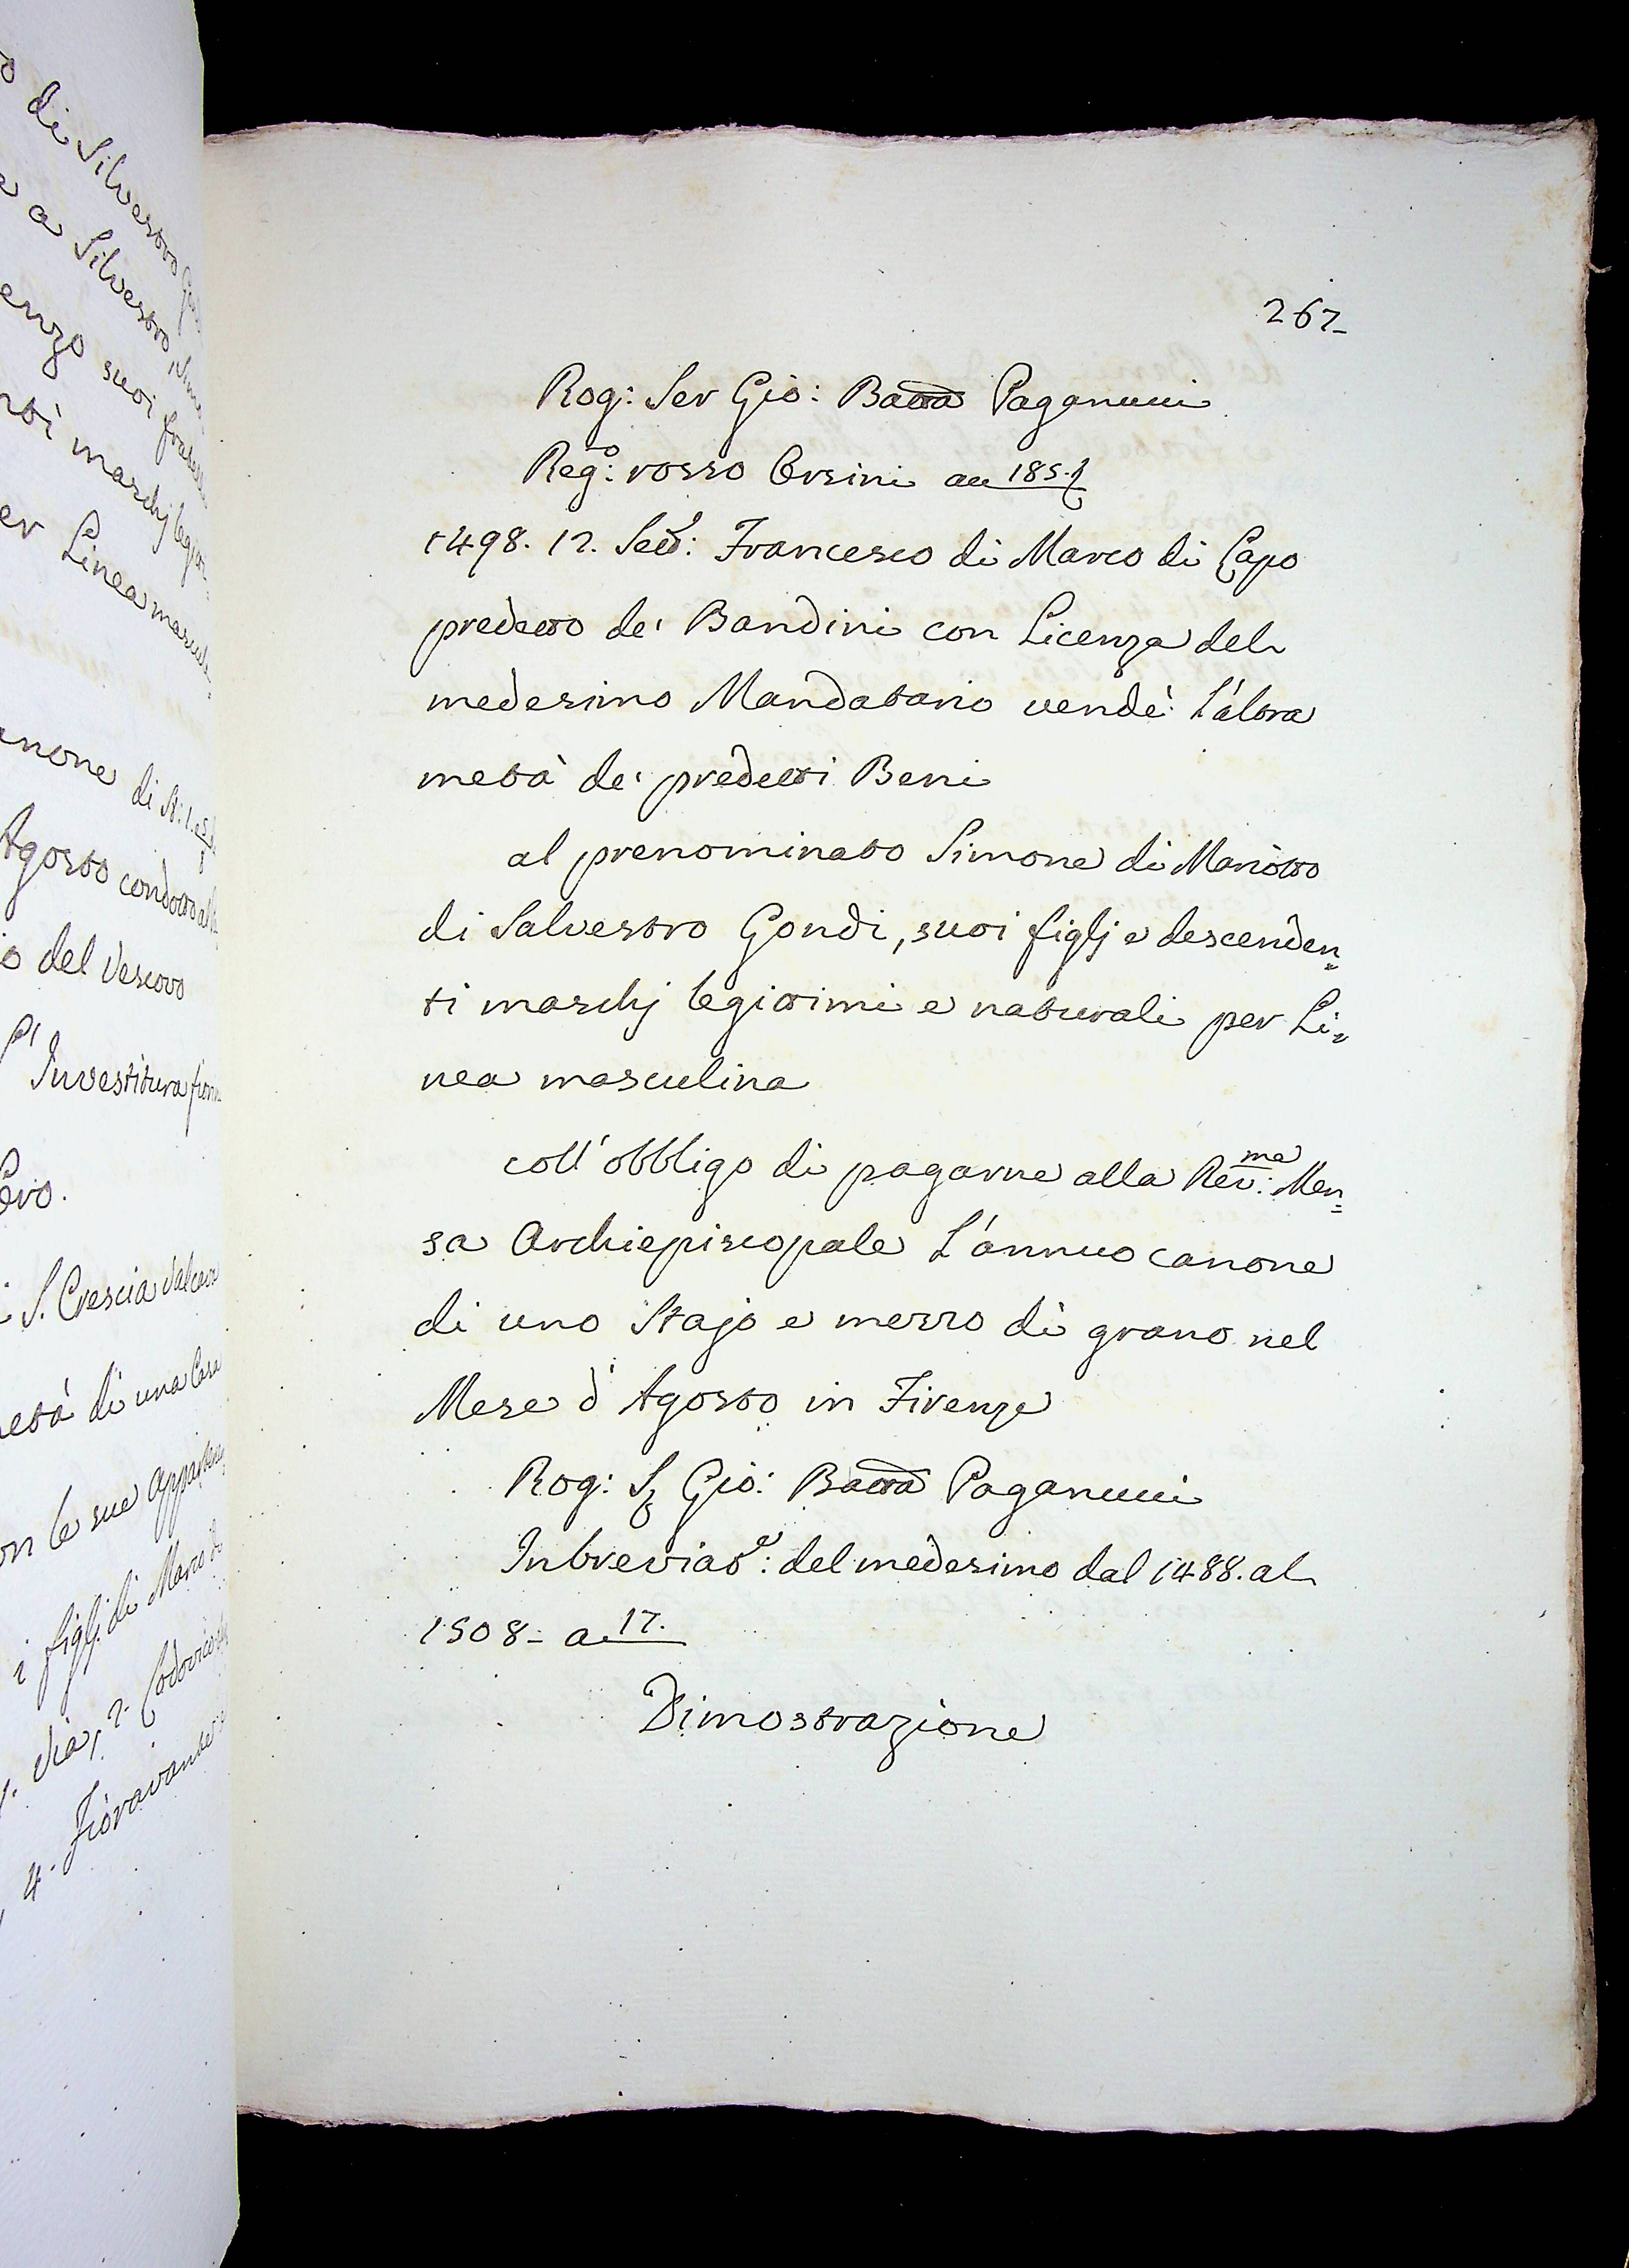 o di Silvestro
a Silvestro
enzo suoi fratelli
maschj legit
er Linea mascul
anone di St: 1. e
Agosto condotto al
o del Vescovo
Investitura
S. Crescia Valcava
metà di una Casa
on le sue apparten
i figlj di Marco di
via, 2. Lodovico
4. Fioravante
267
Rog: Ser Gio: Batta Paganucci
Rego: rosso Orsini ac 185.
1498. 12. Sett: Francesco di Marco di Capo
predetto de' Bandini con Licenza del
medesimo Mandatario vendè: L'altra
metà de' predetti Beni
al prenominato Simone di Mariotto
di Salvestro Gondi, suoi figlj e descenden=
ti maschj legittimi e naturali per Li=
nea masculina
coll' obbligo di pagarne alla Rev:ma Men=
sa Archiepiscopale L'annuo canone
di uno Stajo e mezzo di grano nel
Mese d'Agosto in Firenze
Rog: Sr Gio: Batta Paganucci
Inbreviate: del medesimo dal 1488. al
1508- a 17.
Dimostrazione